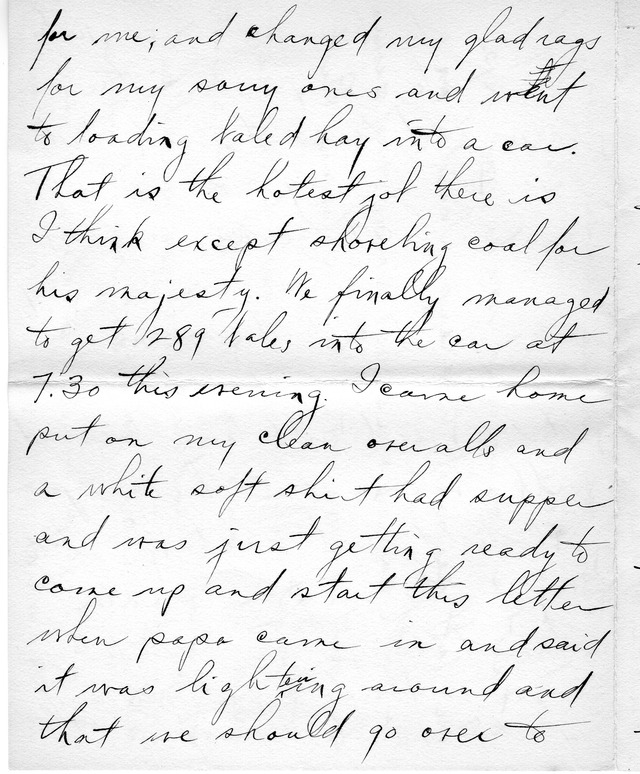 for me, and changed my glad rags
for my sorry ones and went
to loading baled hay into a car.
That is the hotest job there is
I think except shoveling coal for
his majesty. We finally managed
to get 289 bales into the car at
7.30 this evening. I came home
put on my clean overalls and
a white soft shirt had supper
and was just getting ready to
come up and start this letter
when papa came in and said
it was lightening around and
that we should go over to